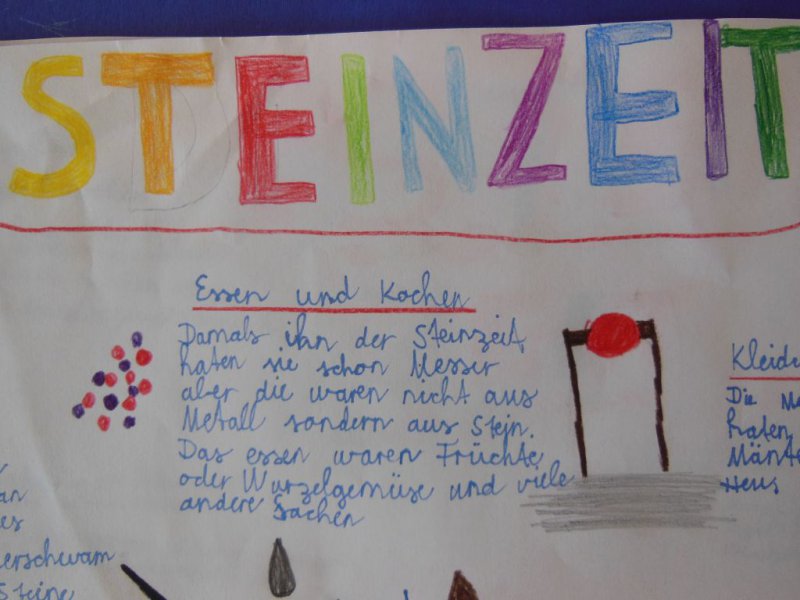 STEINZEIT
Essen und Kochen
Damals ihn der Steinzeit,
haten sie schon Messer
aber die waren nicht aus
Metall sondern aus Stein.
Das essen waren Früchte
oder Wurzelgemüse und viele
andere Sachen
Kleidu
Die Me
haten
Mänte
Heus
an
es
erschwam
Steine